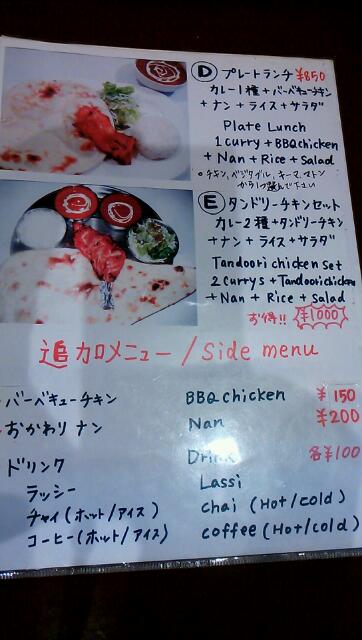 D プレートランチ ¥850
カレー1種+バーベキューチキン
+ナン+ライス+サラダ
Plate Lunch
1 curry + BBQ chicken
+ Nan + Rice + Salad
・チキン、ベジタブル、キーマ、マトン
から1つ選んで下さい
E タンドリーチキンセット
カレー2種+タンドリーチキン
+ナン+ライス+サラダ
Tandoori chicken set
2 currys + Tandoori chicken
+ Nan + Rice + Salad
お得!! ¥1000
追加メニュー / Side menu
・バーベキューチキン BBQ chicken ¥150
・おかわりナン Nan ¥200
ドリンク Drink 各¥100
ラッシー Lassi
チャイ(ホット/アイス) chai (Hot/cold)
コーヒー(ホット/アイス) coffee (Hot/cold)